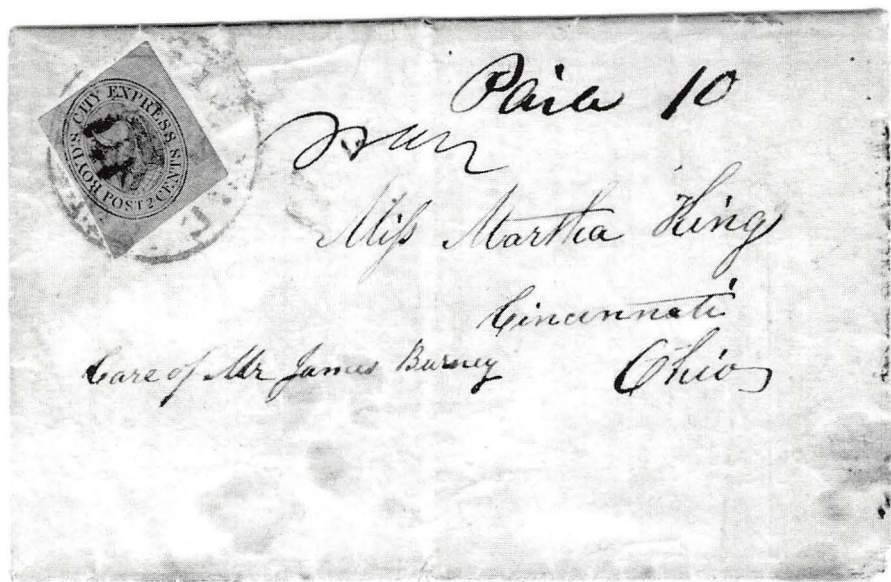 BOYD'S CITY EXPRESS
POST 2 CENTS
Paid 10
Miſs Martha King
Cincinnati
Care of Mr James Burney
Ohio